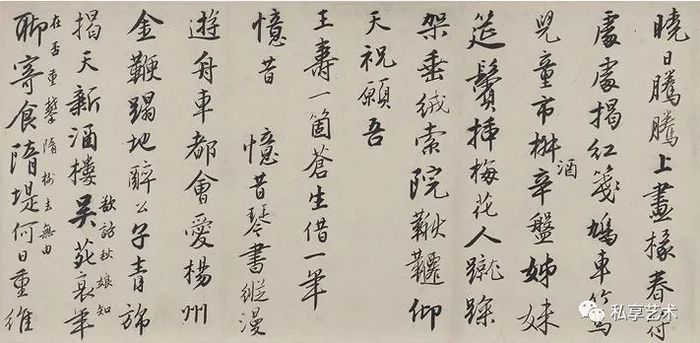 曉日騰騰上畫椽春符
處處揭紅箋鳩車竹馬
兒童市椒酒辛盤姊妹
筵鬢插梅花人蹴踘
架垂絨索院鞦韆仰
天祝願吾
王壽一箇蒼生借一年
憶昔 憶昔琴書縱漫
遊舟車都會愛楊州
金鞭蹋地醉公子青旆
揭天新酒樓吳苑衰年
秋娘知
在否重攀隋柳去無由
聊寄食隋堤何日重維
私享艺术